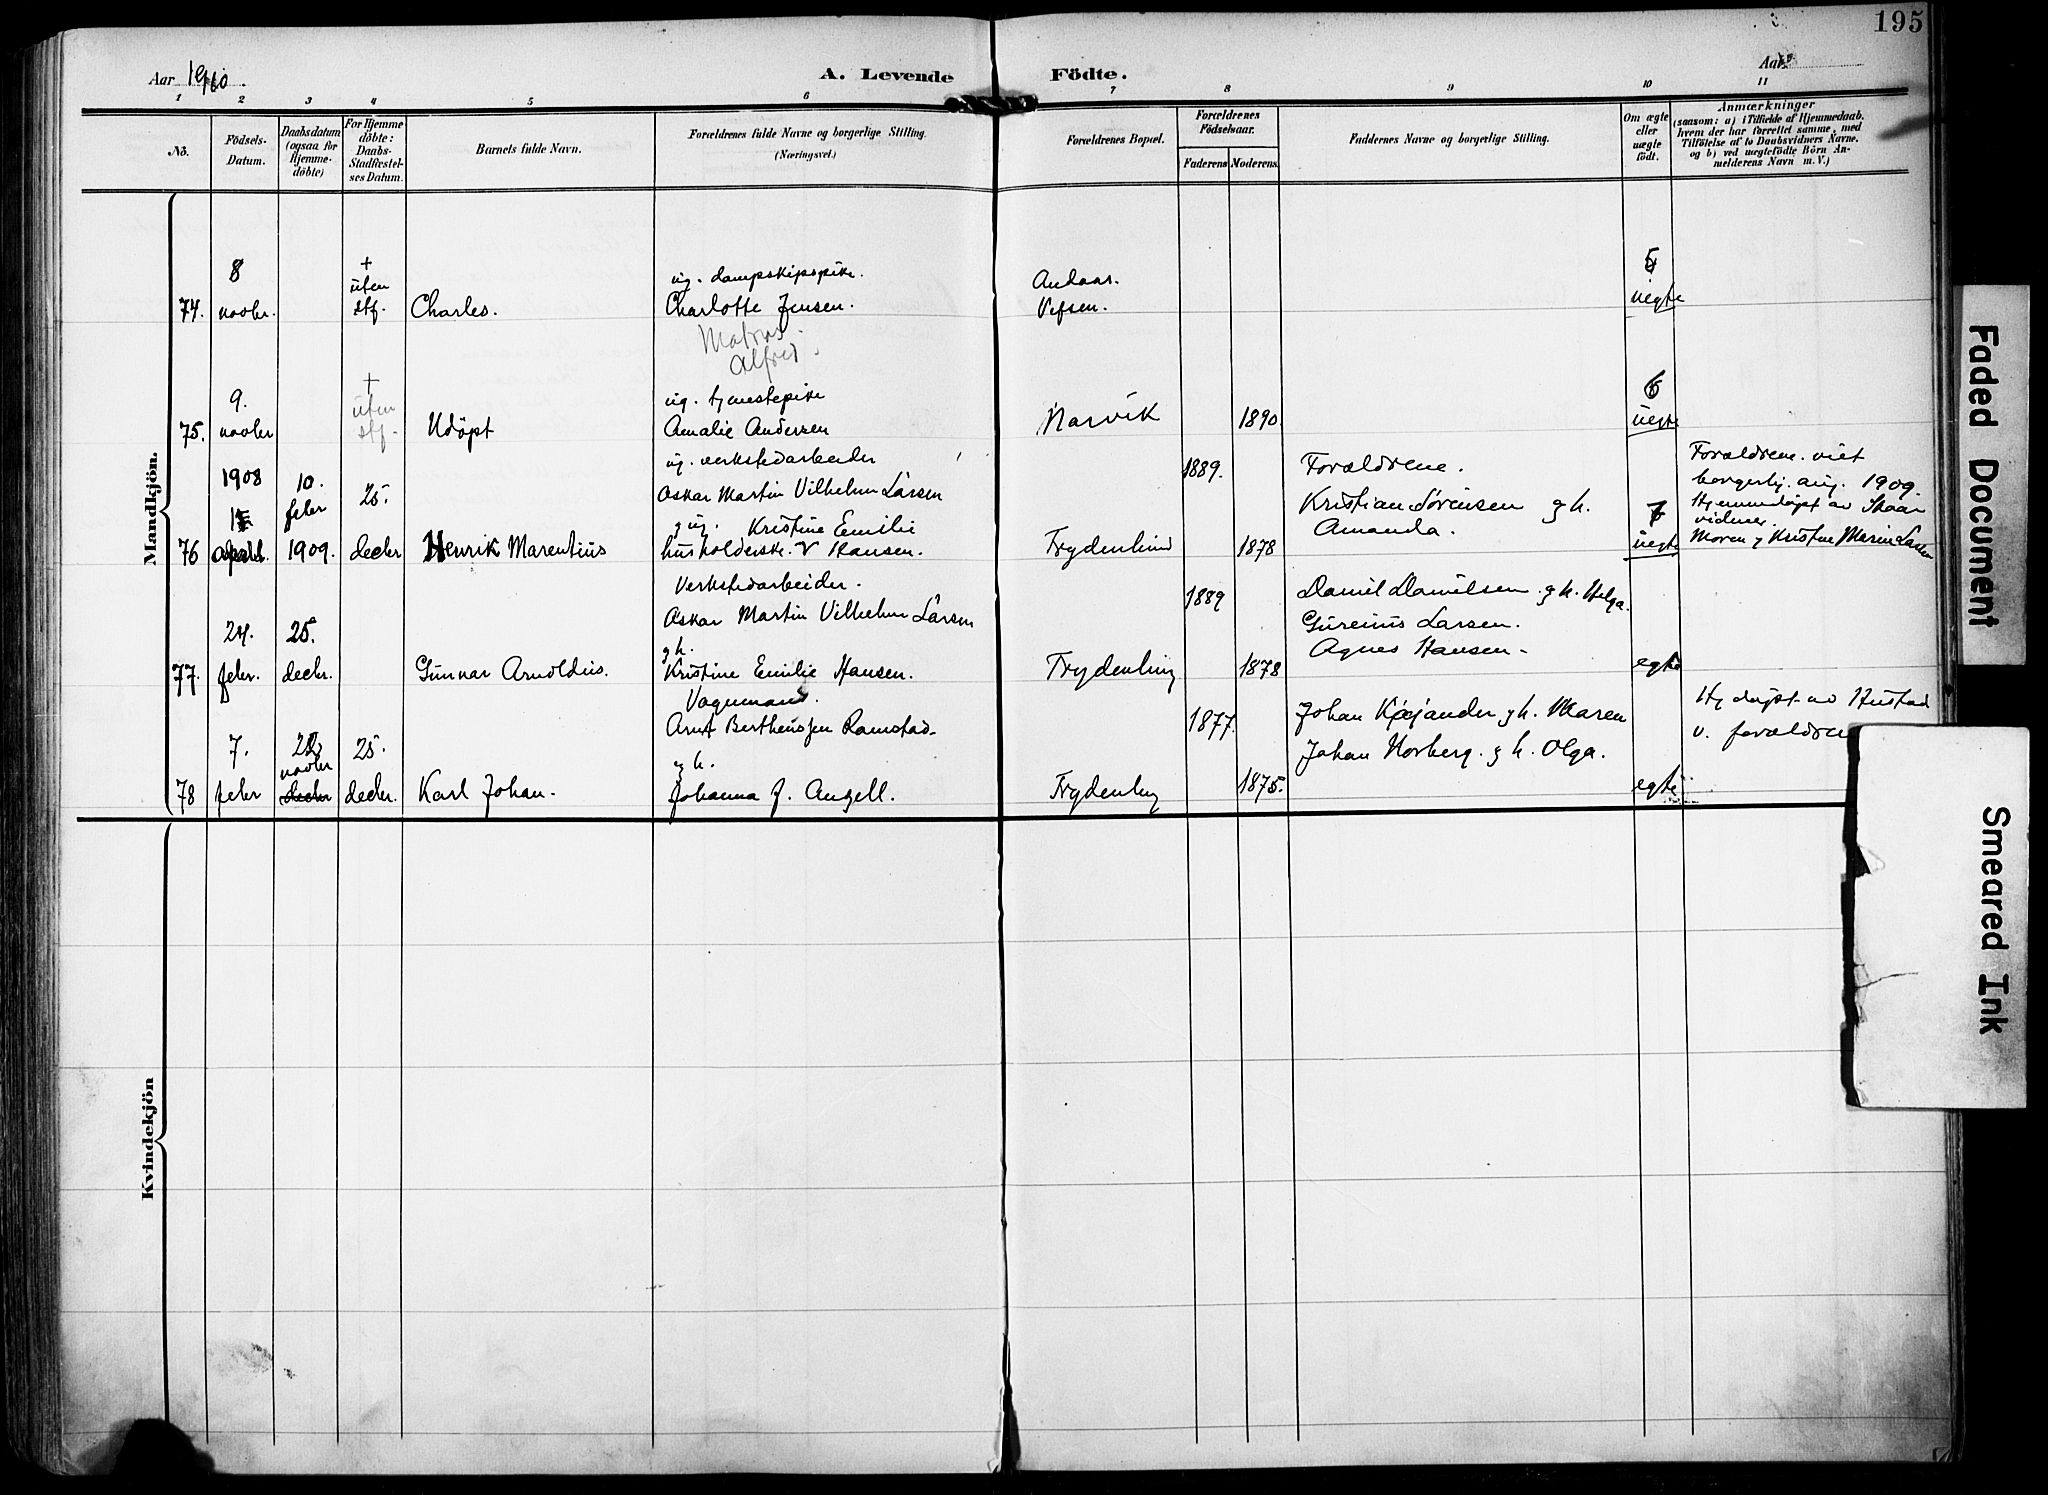 195
Aar 1910.
A. Levende Födte.
Aar
1 2 3 4 5 6 7 8 9 10 11
No.
Födsels-Datum.
Daabsdatum (ogsaa for Hjemme-döbte)
For Hjemme döbte: Daabs-Stadfæstel-ses Datum.
Barnets fulde Navn.
Forældrenes fulde Navne og borgerlige Stilling. (Næringsvei.)
Forældrenes Bopæl.
Forældrenes Födselsaar.
Faderens Moderens.
Faddernes Navne og borgerlige Stilling.
Om ægte eller uægte födt.
Anmærkninger
(saasom: a) i Tilfælde af Hjemmedaab.
hvem der har forrettet samme, med
Tilföielse af to Daabsvidners Navne.
og b) ved uægtefödte Börn An-
melderens Navn m. V.)
Mandkjön.
8
+
uten
ug. dampskipspike.
74. novbr. stf. Charles. Charlotte Jensen.
Vefsen.
5
uegte
Alfred.
9.
+
uten
ug. tjenestepike
75. novbr stf. Udöpt Amalie Andersen Narvik 1890.
6
uegte
ug. verkstedarbeider
1908 10. febr 25.
Oskar Martin Vilhelm Larsen 1889. Forældrene.
Kristian Sørensen g h.
Amanda.
g ug. Kristine Emilie
76 1909. decbr Henrik Marentius husholderske. Hansen. Frydenlund 1878
7
uegte
Forældrene viet
borgerlig. aug. 1909.
Hjemmedöpt av Skaar
vidner.
Moren g Kristine Marie Larsen
Verkstedarbeider.
Oskar Martin Vilhelm Larsen 1889 Daniel Danielsen g h. Helga.
24. 25.
g h.
Larsen.
Agnes Hansen -
77. febr. decbr. Gunnar Arnoldus. Kristine Emilie Hansen. Frydenlung 1878 egte
Vognmand.
Arnt Bertheussen Ramstad 1877. Johan Kjejander g h. Maren
7. 25.
novbr
g h.
Johan Norberg. g h. Olga.
78 febr decbr decbr. Karl Johan. Johanna J. Angell. Frydenlung 1875. egte
Hj döpt av Hustad
v. forældrene
Kvindekjön
Faded Document
Smeared Ink